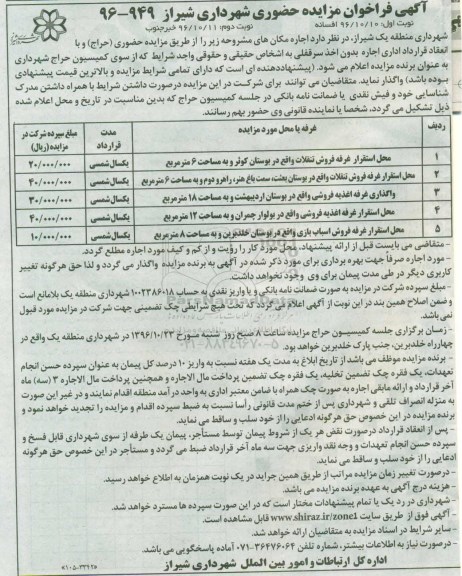 آگهی فراخوان مزایده حضوری شهرداری شیراز ۹۴۹-۹۶
نوبت اول: ۹۶/۱۰/۱۰ افسانه    نوبت دوم: ۹۶/۱۰/۱۱ خبرجنوب
شهرداری منطقه یک شیراز، در نظر دارد اجاره مکان های مشروحه زیر را از طریق مزایده حضوری (حراج) و با
انعقاد قرارداد اداری اجاره بدون اخذ سرقفلی به اشخاص حقیقی و حقوقی واجد شرایط که از سوی کمیسیون حراج شهرداری
به عنوان برنده مزایده اعلام می شود. (پیشنهاددهنده ای است که دارای تمامی شرایط مزایده و بالاترین قیمت پیشنهادی
بوده باشد) واگذار نماید. متقاضیان می توانند برای شرکت در این مزایده درصورت داشتن شرایط با همراه داشتن مدرک
شناسایی خود و فیش نقدی یا ضمانت نامه بانکی در جلسه کمیسیون حراج که بدین مناسبت در تاریخ و محل اعلام شده
ذیل تشکیل می گردد، شخصا یا نماینده قانونی وی حضور بهم رسانند.
ردیف    غرفه یا محل مورد مزایده    مدت قرارداد    مبلغ سپرده شرکت در مزایده (ریال)
۱    محل استقرار غرفه فروش تنقلات واقع در بوستان کوثر و به مساحت ۶ مترمربع    یکسال شمسی    ۲۰/۰۰۰/۰۰۰
۲    محل استقرار غرفه فروش تنقلات واقع در بوستان بعثت، سمت باغ هنر، راهرو دوم و به مساحت ۶ مترمربع    یکسال شمسی    ۴۰/۰۰۰/۰۰۰
۳    واگذاری غرفه اغذیه فروشی واقع در بوستان اردیبهشت و به مساحت ۱۸ مترمربع    یکسال شمسی    ۳۰/۰۰۰/۰۰۰
۴    محل استقرار غرفه اغذیه فروشی واقع در بولوار چمران و به مساحت ۱۲ مترمربع    یکسال شمسی    ۴۰/۰۰۰/۰۰۰
۵    محل استقرار غرفه فروش اسباب بازی واقع در بوستان خلدبرین و به مساحت ۸ مترمربع    یکسال شمسی    ۱۰/۰۰۰/۰۰۰
- متقاضی می بایست قبل از ارائه پیشنهاد، محل مورد کار را رؤیت و از کم و کیف مورد اجاره مطلع گردد.
- مورد اجاره صرفاً جهت بهره برداری برای مورد ذکر شده در آگهی به برنده مزایده واگذار می گردد و لذا حق هرگونه تغییر
کاربری دیگر در طی مدت پیمان برای وی وجود نخواهد داشت.
- مبلغ سپرده شرکت در مزایده به صورت ضمانت نامه بانکی و یا واریز نقدی به حساب ۱۰۰۲۳۸۶۰۱۸ شهرداری منطقه یک بلامانع است
و ضمن اصلاح همین بند در این نوبت از آگهی اعلام می گردد که تحت هیچ شرایطی چک تضمینی جهت شرکت در مزایده مورد قبول
نمی باشد.
- زمان برگزاری جلسه کمیسیون حراج مزایده ساعت ۸ صبح روز شنبه مورخ ۱۳۹۶/۱۰/۲۳ در شهرداری منطقه یک واقع در
چهارراه خلدبرین، جنب پارک خلدبرین خواهد بود.
- برنده مزایده موظف می باشد از تاریخ ابلاغ به مدت یک هفته نسبت به واریز ۱۰ درصد کل پیمان به عنوان سپرده حسن انجام
تعهدات، یک فقره چک تضمین تخلیه، یک فقره چک تضمین پرداخت مال الاجاره و همچنین پرداخت مال الاجاره ۳ (سه) ماه
آخر قرارداد و ارائه مابقی اجاره به صورت چک همراه با ضامن معتبر اداری به واحد در آمد منطقه اقدام نمایند و در غیر این صورت
به منزله انصراف تلقی و شهرداری پس از ختم مدت قانونی رأسا نسبت به ضبط سپرده اقدام و مزایده را تجدید خواهد نمود و
برنده مزایده در این خصوص حق هرگونه ادعایی را از خود سلب و ساقط می نماید.
- پس از انعقاد قرارداد درصورت نقض هر یک از شروط پیمان توسط مستأجر، پیمان یک طرفه از سوی شهرداری قابل فسخ و
سپرده حسن انجام تعهدات و وجه نقد واریزی جهت سه ماه آخر قرارداد ضبط می گردد و مستأجر در این خصوص حق هرگونه
ادعایی را از خود سلب و ساقط می نماید.
- درصورت تغییر زمان مزایده مراتب از طریق همین جراید در یک نوبت همزمان به اطلاع خواهد رسید.
- هزینه درج آگهی به عهده برنده مزایده می باشد.
- شهرداری در رد یک یا تمام پیشنهادات مختار است که در این صورت سپرده ها مسترد خواهد شد.
- آگهی فوق از طریق سایت www.shiraz.ir/zone1 قابل مشاهده است.
- سایر شرایط در اسناد مزایده به متقاضیان ارائه خواهد شد.
- درصورت نیاز به اطلاعات بیشتر، شماره تلفن ۳۶۴۷۶۰۶۴-۰۷۱ آماده پاسخگویی می باشد.
اداره کل ارتباطات و امور بین الملل شهرداری شیراز